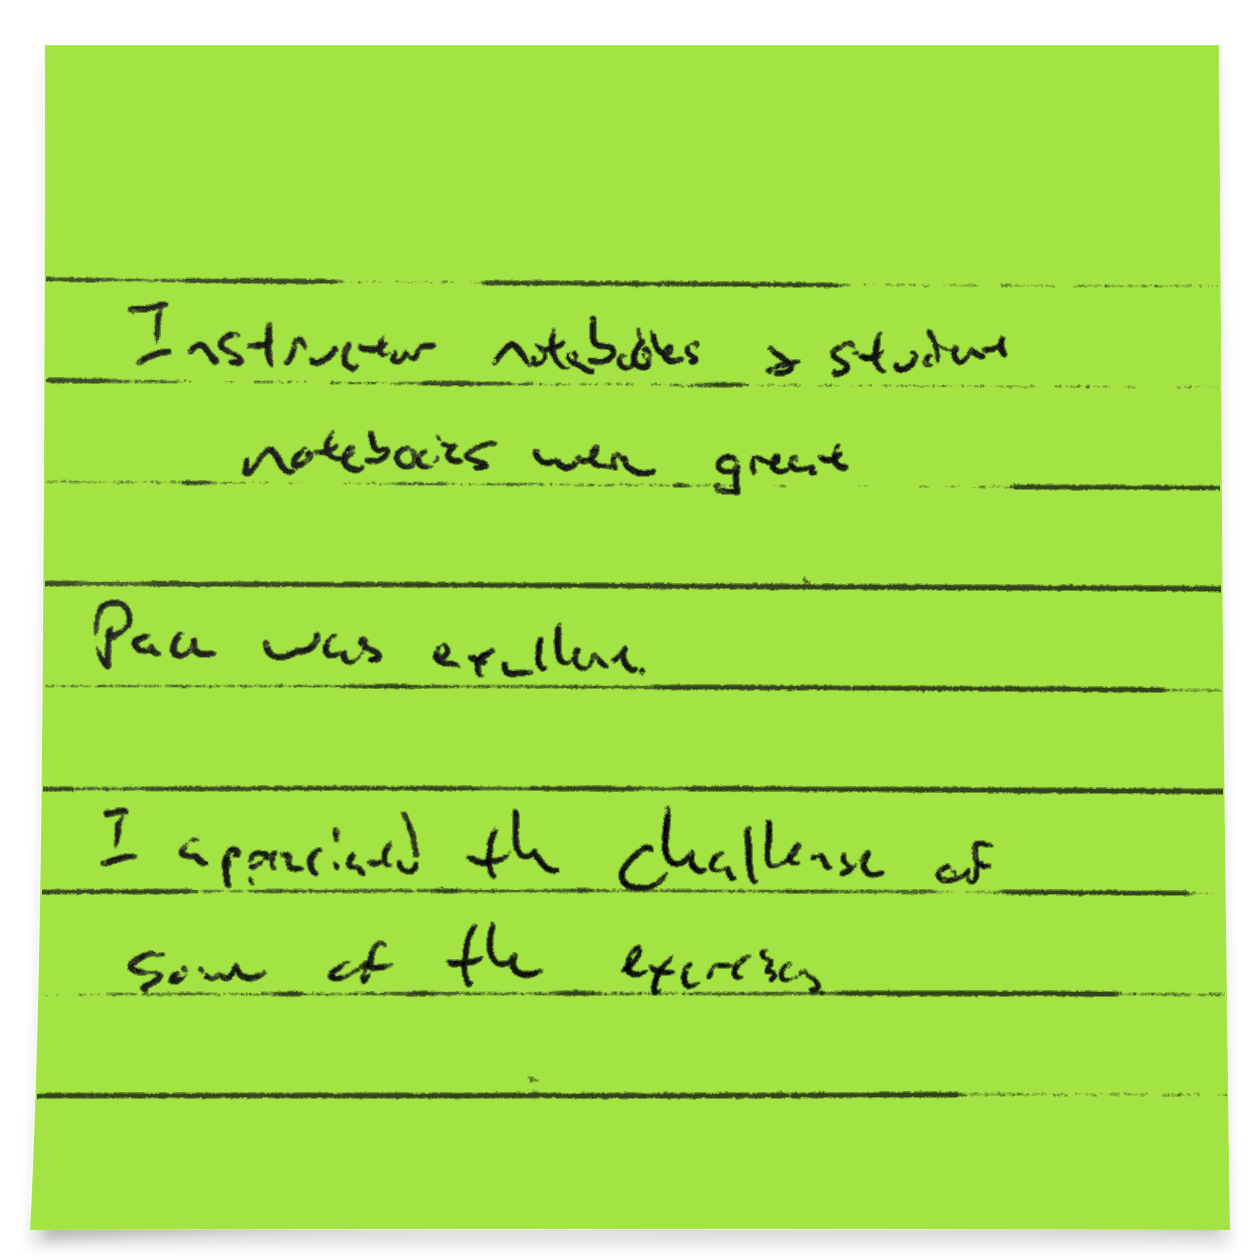 Instructor notebooks & student
notebooks were great
Pace was excellent.
I appreciated the challenge of
some of the exercises